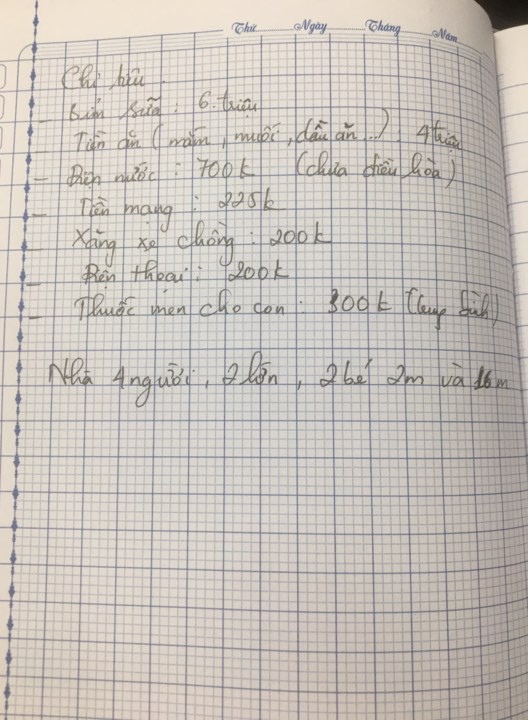 Thứ Ngày Tháng Năm
Chi tiêu.
- Bỉm sữa : 6.triệu
Tiền ăn (mắm, muối, dầu ăn..) : 4 triệu
- Điện nước : 700k (chưa điều hòa)
- Tiền mạng : 225k
- Xăng xe chồng : 200k
- Điện thoại : 200k
- Thuốc men cho con : 300k (trung bình)
Nhà 4 người, 2 lớn, 2 bé 2m và 16m